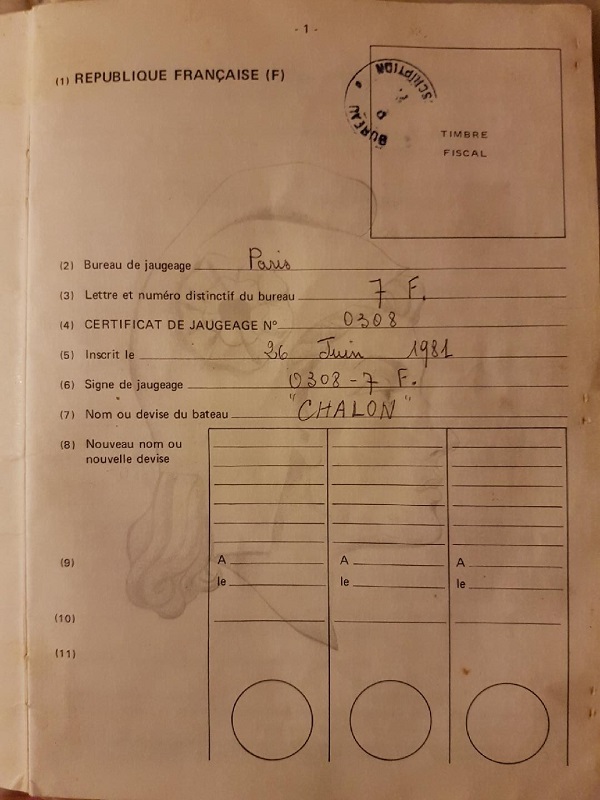 - 1 -
(1) REPUBLIQUE FRANÇAISE (F)
BUREAU
SCRIPTION
TIMBRE
FISCAL
(2) Bureau de jaugeage Paris
(3) Lettre et numéro distinctif du bureau 7 F.
(4) CERTIFICAT DE JAUGEAGE N° 0308
(5) Inscrit le 26 Juin 1981
(6) Signe de jaugeage 0308-7 F.
(7) Nom ou devise du bateau "CHALON"
(8) Nouveau nom ou
nouvelle devise
(9) A A A
le le le
(10)
(11)